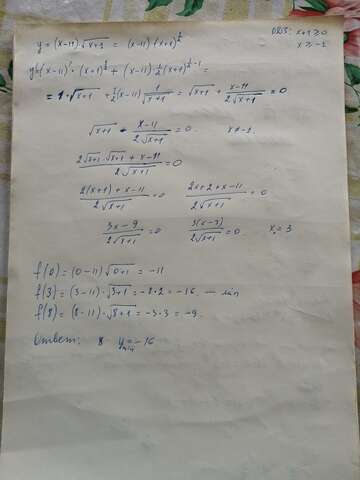 y = (x-11)√x+1 = (x-11)·(x+1)^½
ОДЗ: x+1≥0
x ≥ -1
y' = (x-11)'·(x+1)^½ + (x-11)·½(x+1)^(½-1) =
= 1·√x+1 + ½(x-11)·1/√x+1 = √x+1 + x-11/2√x+1 = 0
√x+1 + x-11/2√x+1 = 0. x≠-1.
2√x+1·√x+1 + x-11/2√x+1 = 0
2(x+1)+x-11/2√x+1 = 0 2x+2+x-11/2√x+1 = 0
3x-9/2√x+1 = 0 3(x-3)/2√x+1 = 0 x = 3
f(0) = (0-11)√0+1 = -11
f(3) = (3-11)·√3+1 = -8·2 = -16. — min
f(8) = (8-11)·√8+1 = -3·3 = -9.
Ответ: y = -16